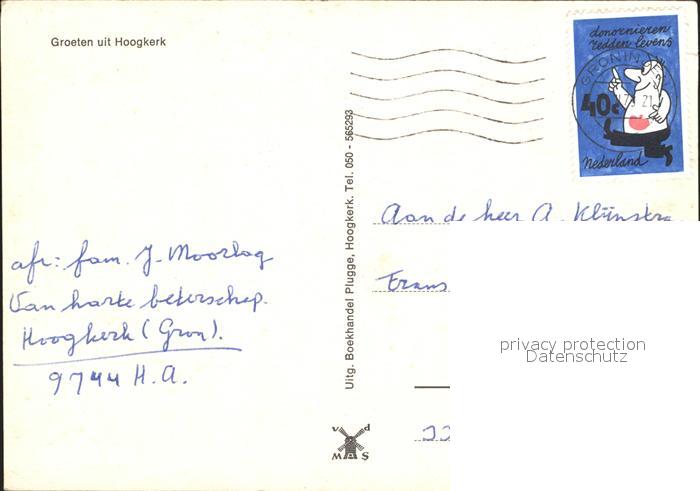 Groeten uit Hoogkerk
donornieren
redden levens
GRONINGEN
40c
nederland
Uitg. Boekhandel Plugge, Hoogkerk. Tel. 050 - 565293
Aan de heer A. Klijnstra
Frans
afz: fam. J. Moorlag
Van harte beterschap.
Hoogkerk (Gron).
9744 H.A.
v d
MAS
privacy protection
Datenschutz